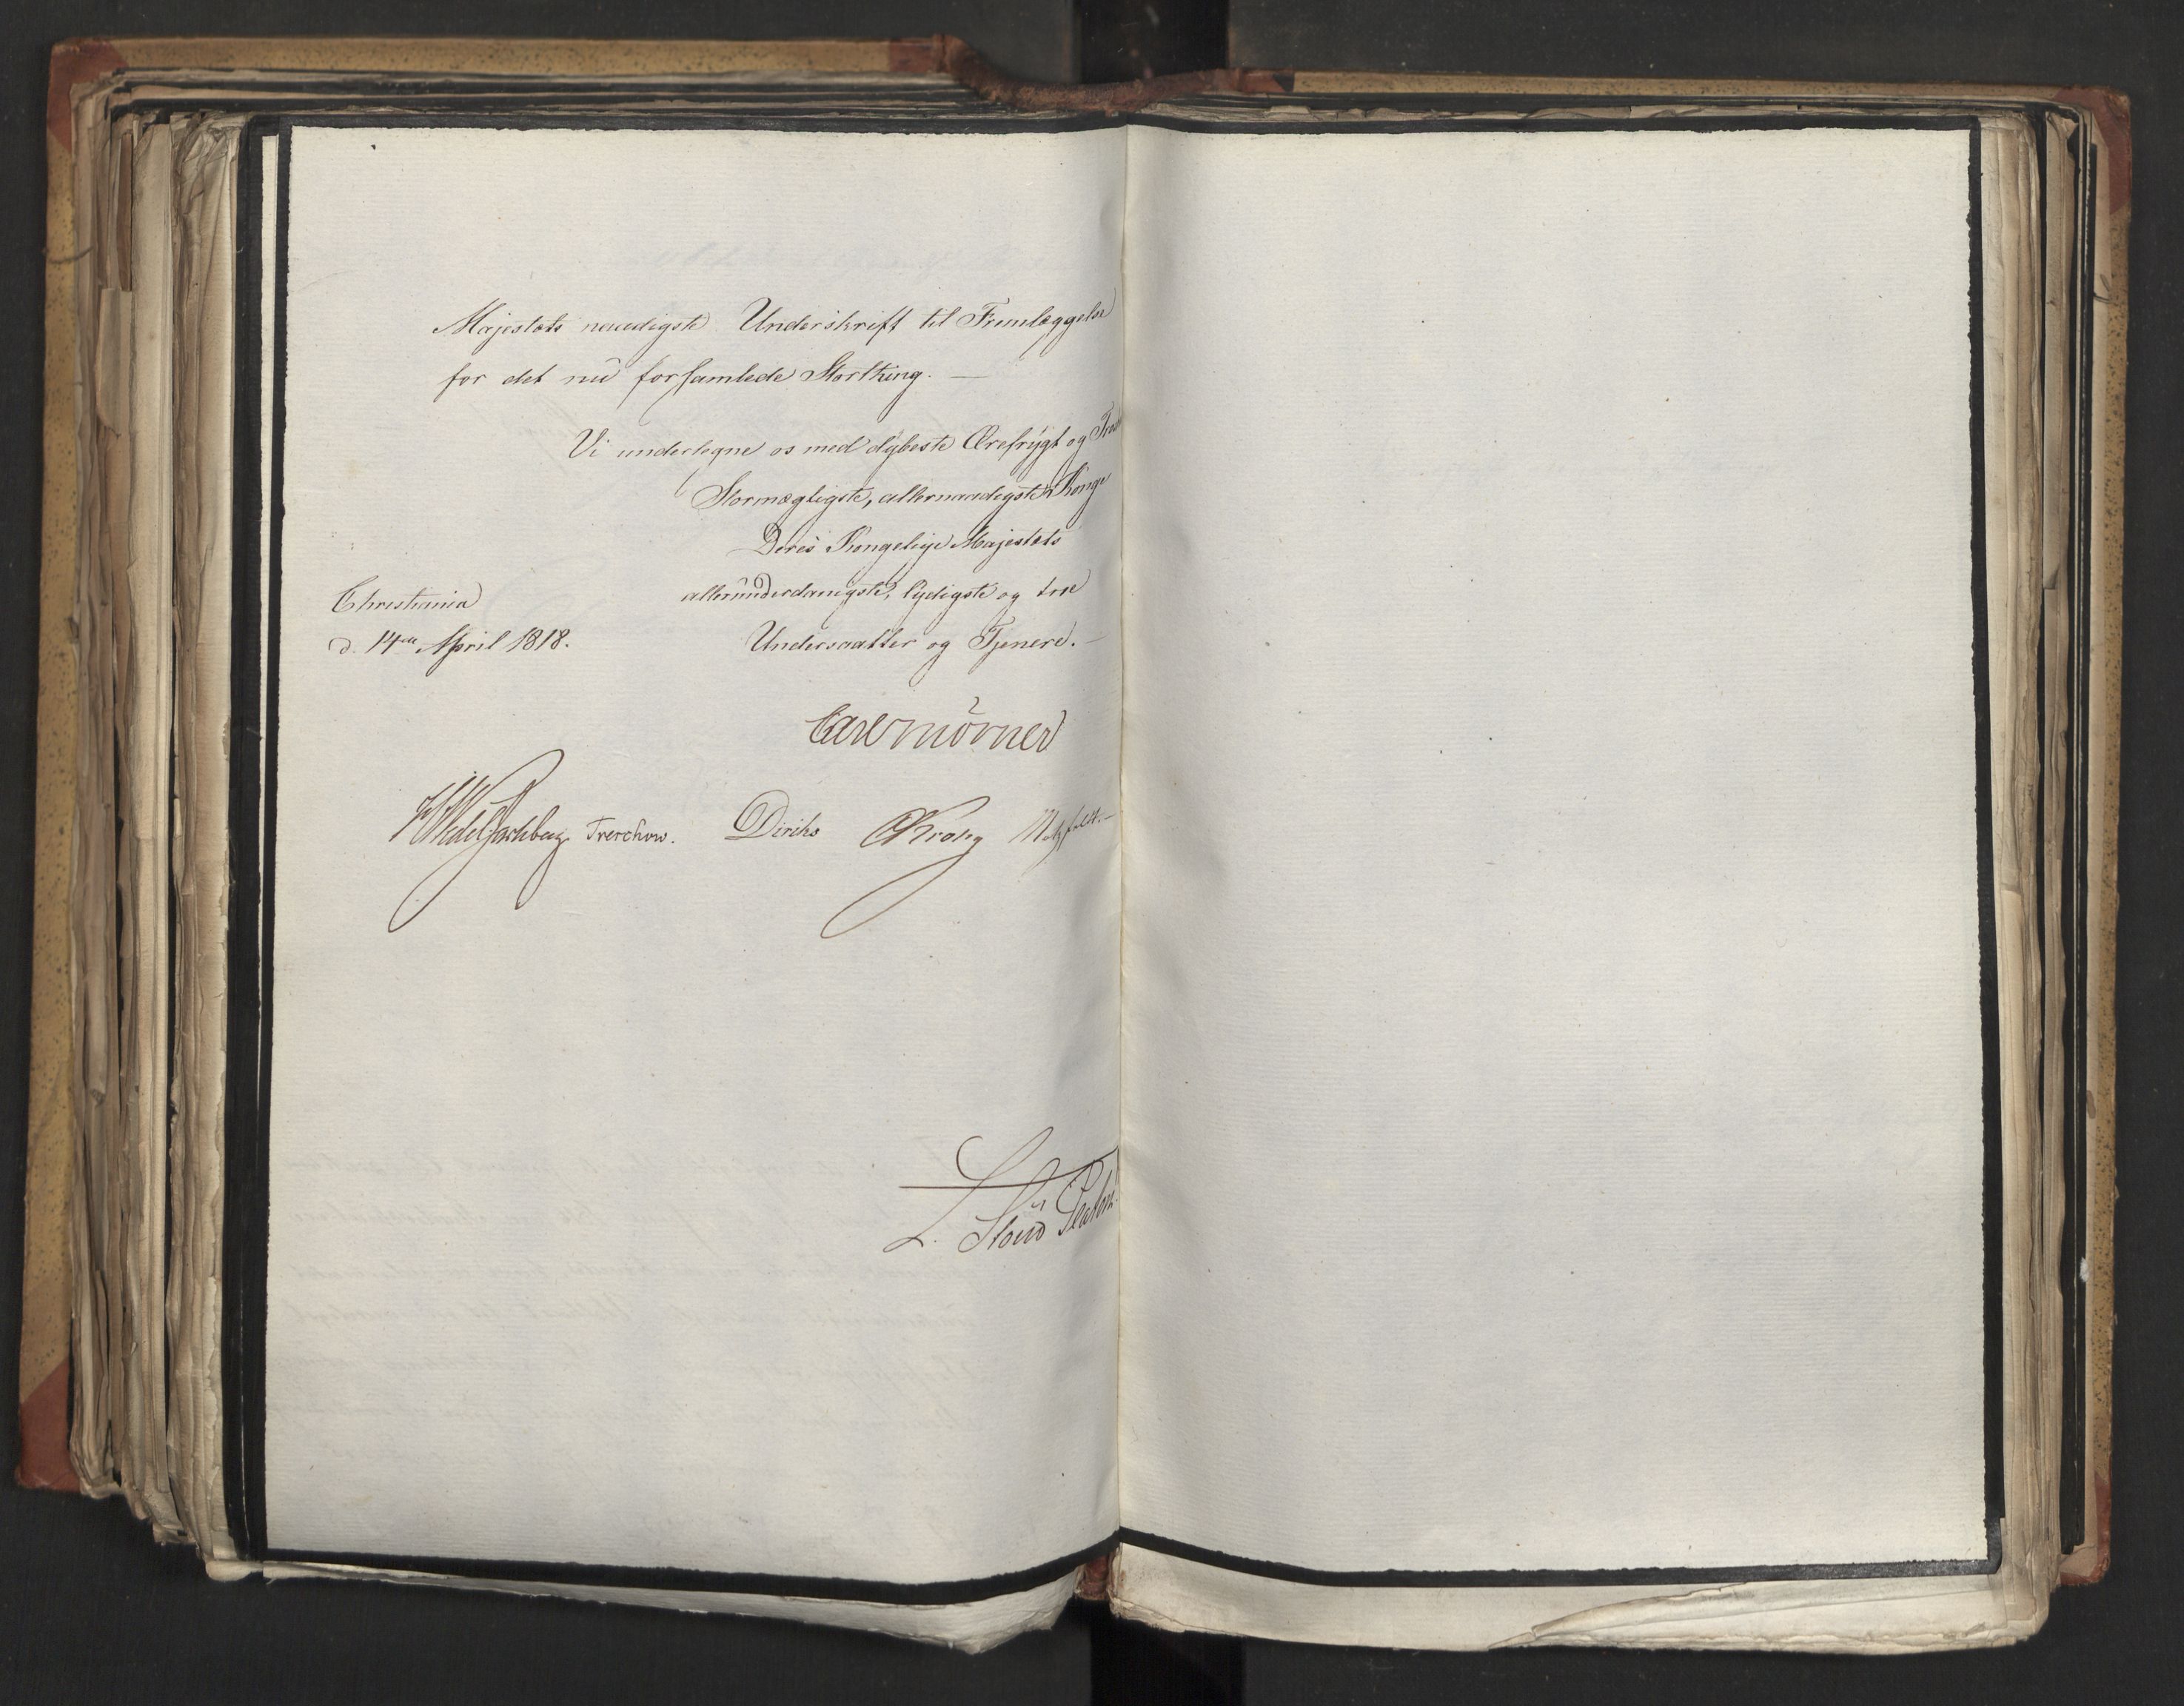 Majestæts naadigste Underskrift til Fremlæggelse
for det nu forsamlede Storthing. —
Vi undertegne os med dybeste Ærefrygt og
Stormægtigste, allernaadigste Konge
Deres Kongelige Majestæts
allerunderdanigste, lydigste og troe
Undersaatter og Tjenere. —
Christiania
d. 14de April 1818.
Carl Mörner
Wedel Jarlsberg Treschow. Diriks Krogh Motzfeldt. —
L. Stoud Platou